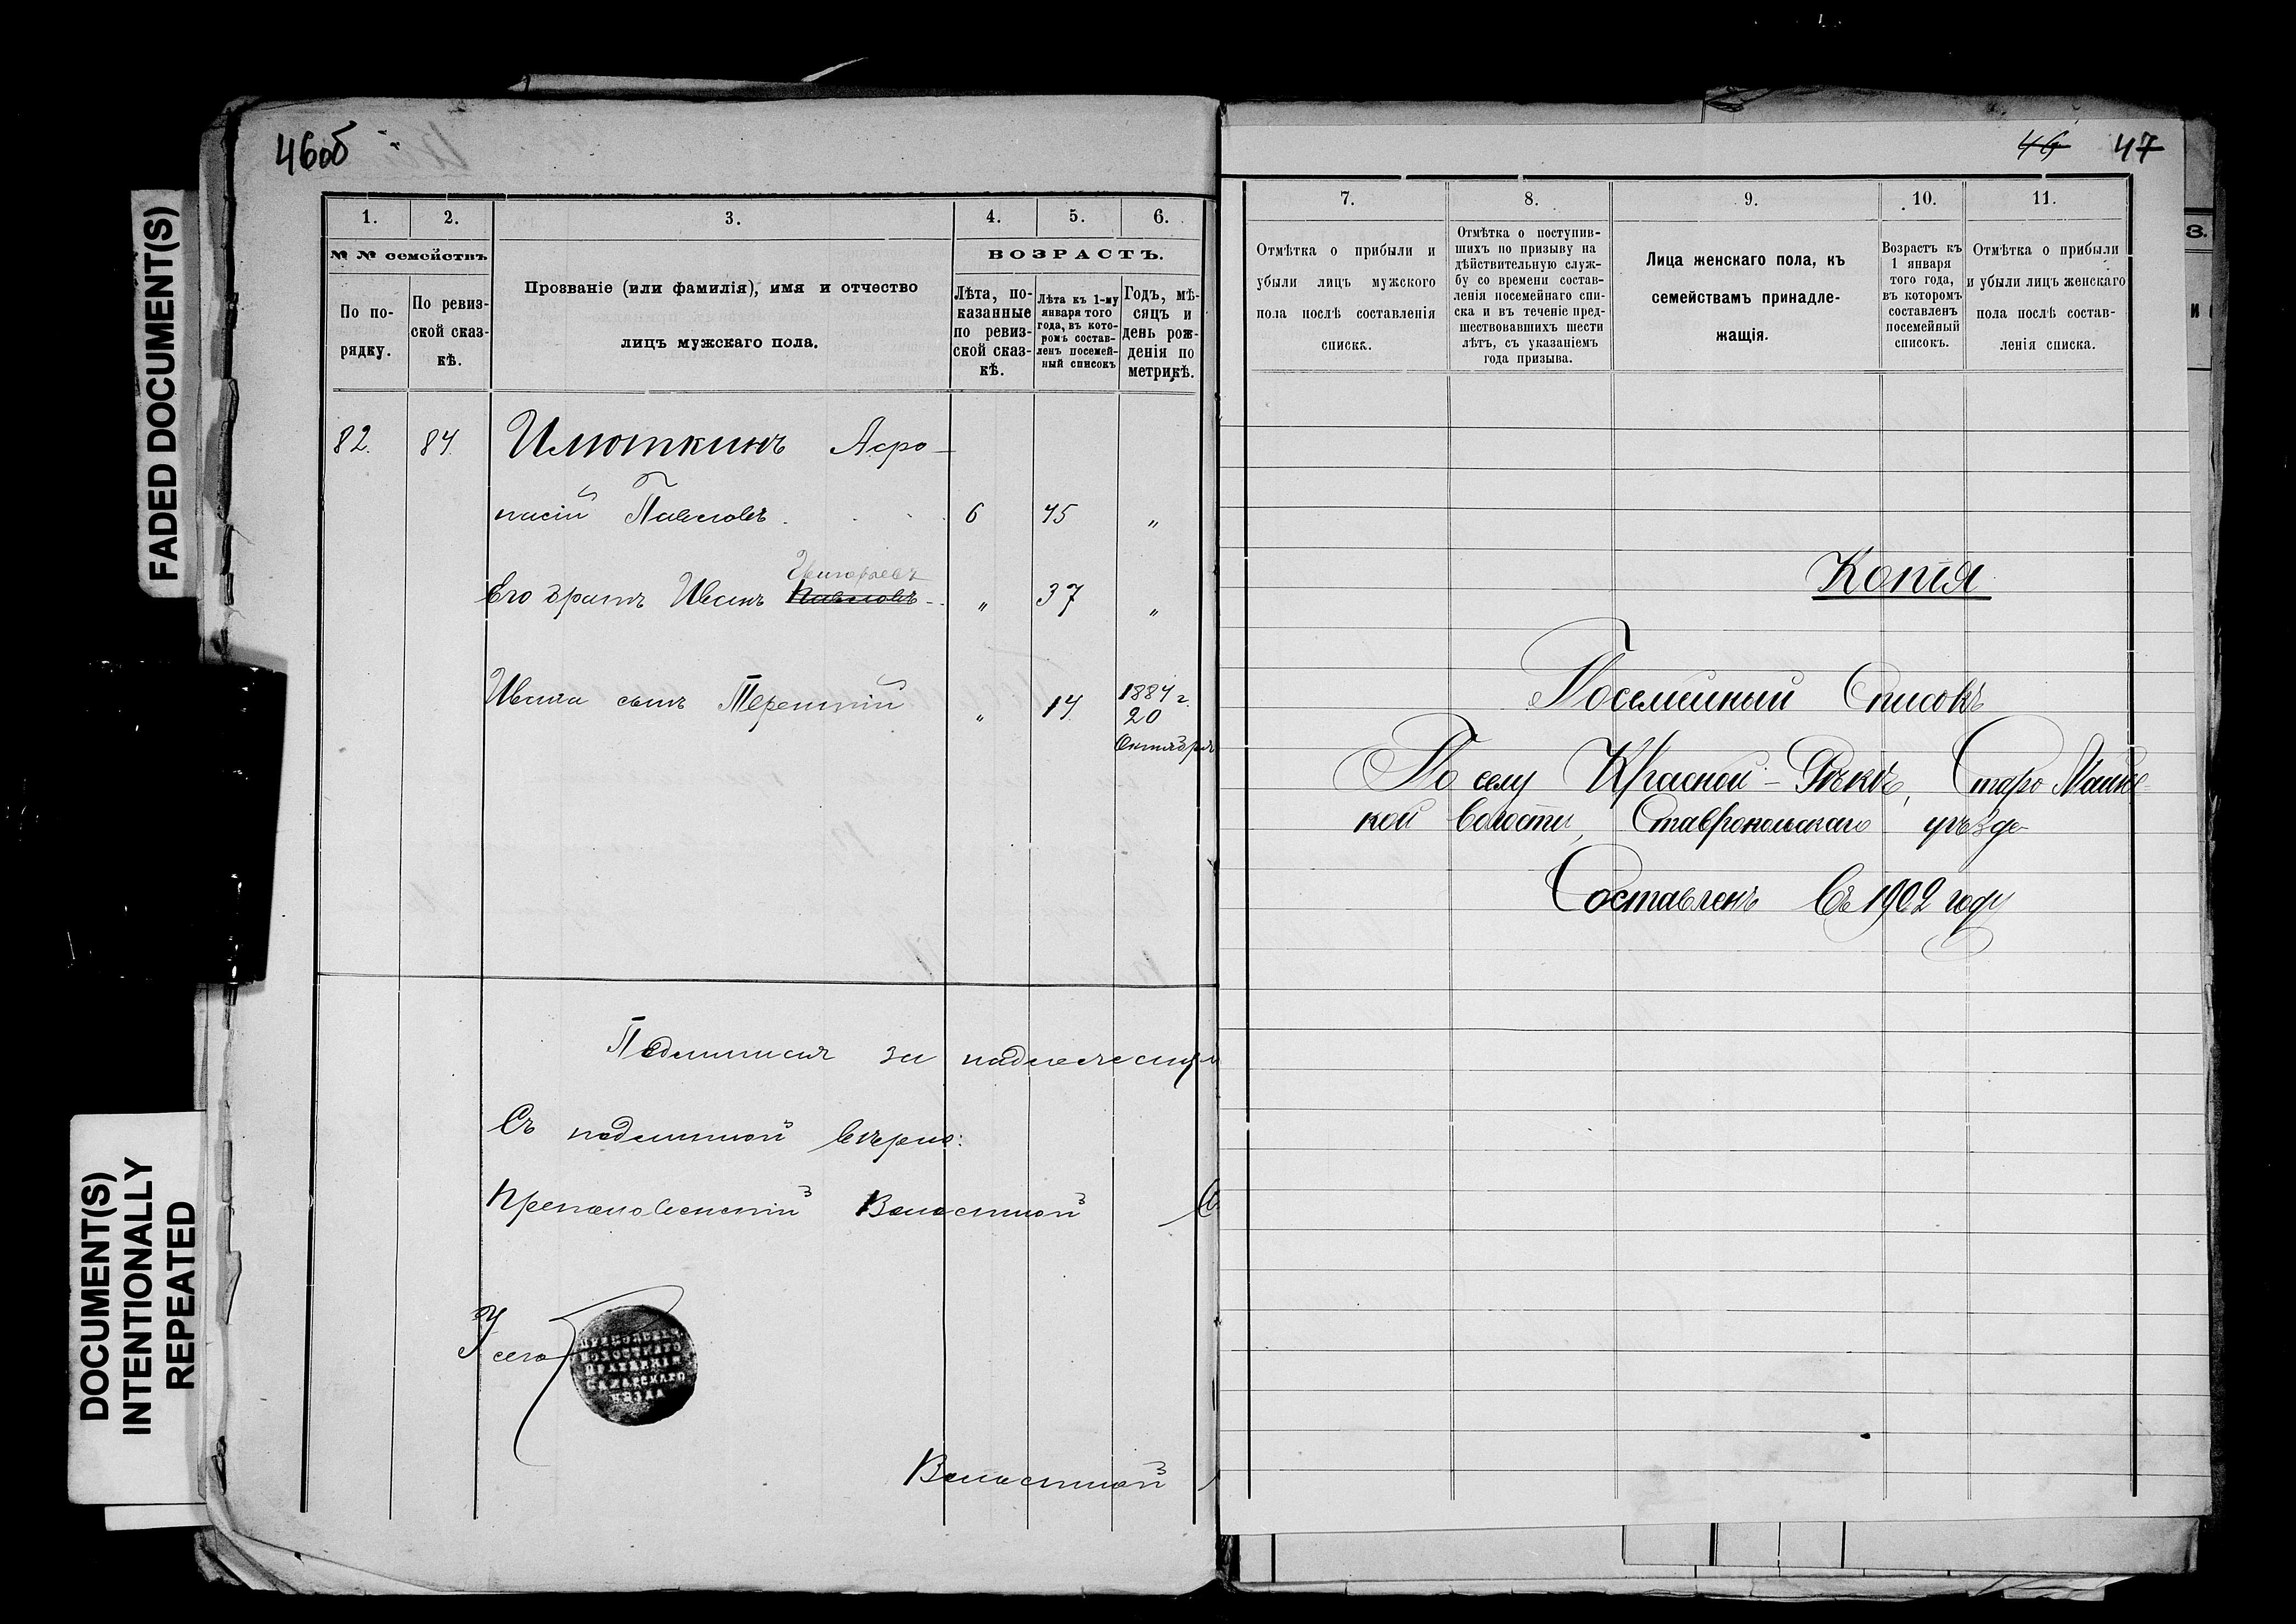 FADED DOCUMENT(S)
DOCUMENT(S)
INTENTIONALLY
REPEATED
46об
1. 2. 3. 4. 5. 6.
№ № семействъ
ВОЗРАСТЪ.
По по-
рядку.
По ревиз-
ской сказ-
кѣ.
Прозваніе (или фамилія), имя и отчество
лицъ мужскаго пола.
Лѣта, по-
казанные
по ревиз-
ской сказ-
кѣ.
Лѣта къ 1-му
января того
года, въ кото-
ромъ состав-
ленъ посемей-
ный списокъ
Годъ, мѣ-
сяцъ и
день рож-
денія по
метрикѣ.
82. 84. Илюткинъ Афро-
насій Павловъ 6 45 "
Григорьевъ
Его братъ Иванъ Павловъ " 37 "
Ивана сынъ Терентій " 14 1884 г.
20
Октября
Подлинная за надлежащи
Съ подлинной вѣрно:
Волостной
Волостной
46 47
7. 8. 9. 10. 11.
Отмѣтка о прибыли и
убыли лицъ мужского
пола послѣ составленія
списка.
Отмѣтка о поступив-
шихъ по призыву на
дѣйствительную служ-
бу со времени состав-
ленія посемейнаго спи-
ска и въ теченіе пред-
шествовавшихъ шести
лѣтъ, съ указаніемъ
года призыва.
Лица женскаго пола, къ
семействамъ принадле-
жащія.
Возрастъ къ
1 января
того года,
въ которомъ
составленъ
посемейный
списокъ.
Отмѣтка о прибыли
и убыли лицъ женскаго
пола послѣ состав-
ленія списка.
Копія
Посемейный Списокъ
По селу Красной-Рѣкѣ, Старо Майнс-
кой волости, Ставропольскаго уѣзда
Составленъ въ 1902 году
З.
и